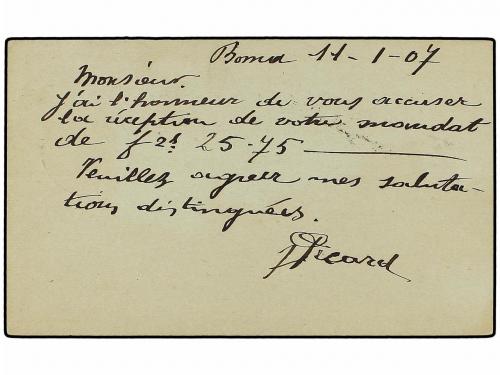 Boma 11-1-07
Monsieur.
J'ai l'honneur de vous accuser
la reception de votre mandat
de frs 25.75
Veuillez agreer mes saluta-
tions distinguées.
Picard